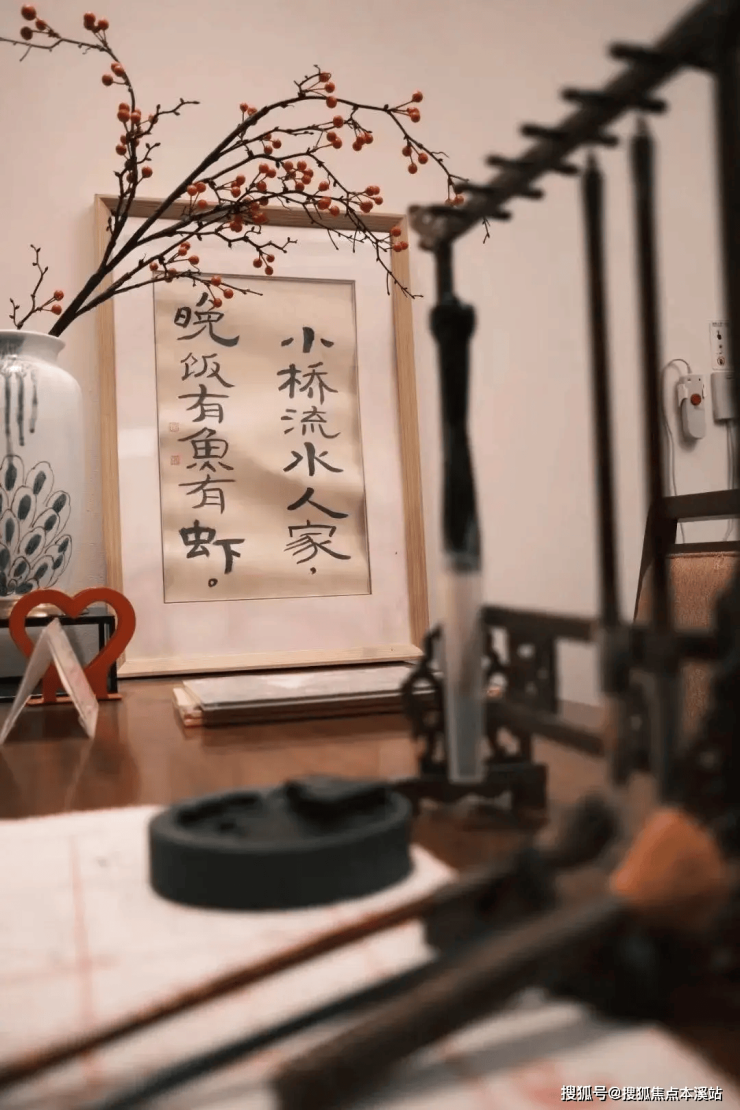 小桥流水人家，
晚饭有魚有虾。
搜狐号@搜狐焦点本溪站